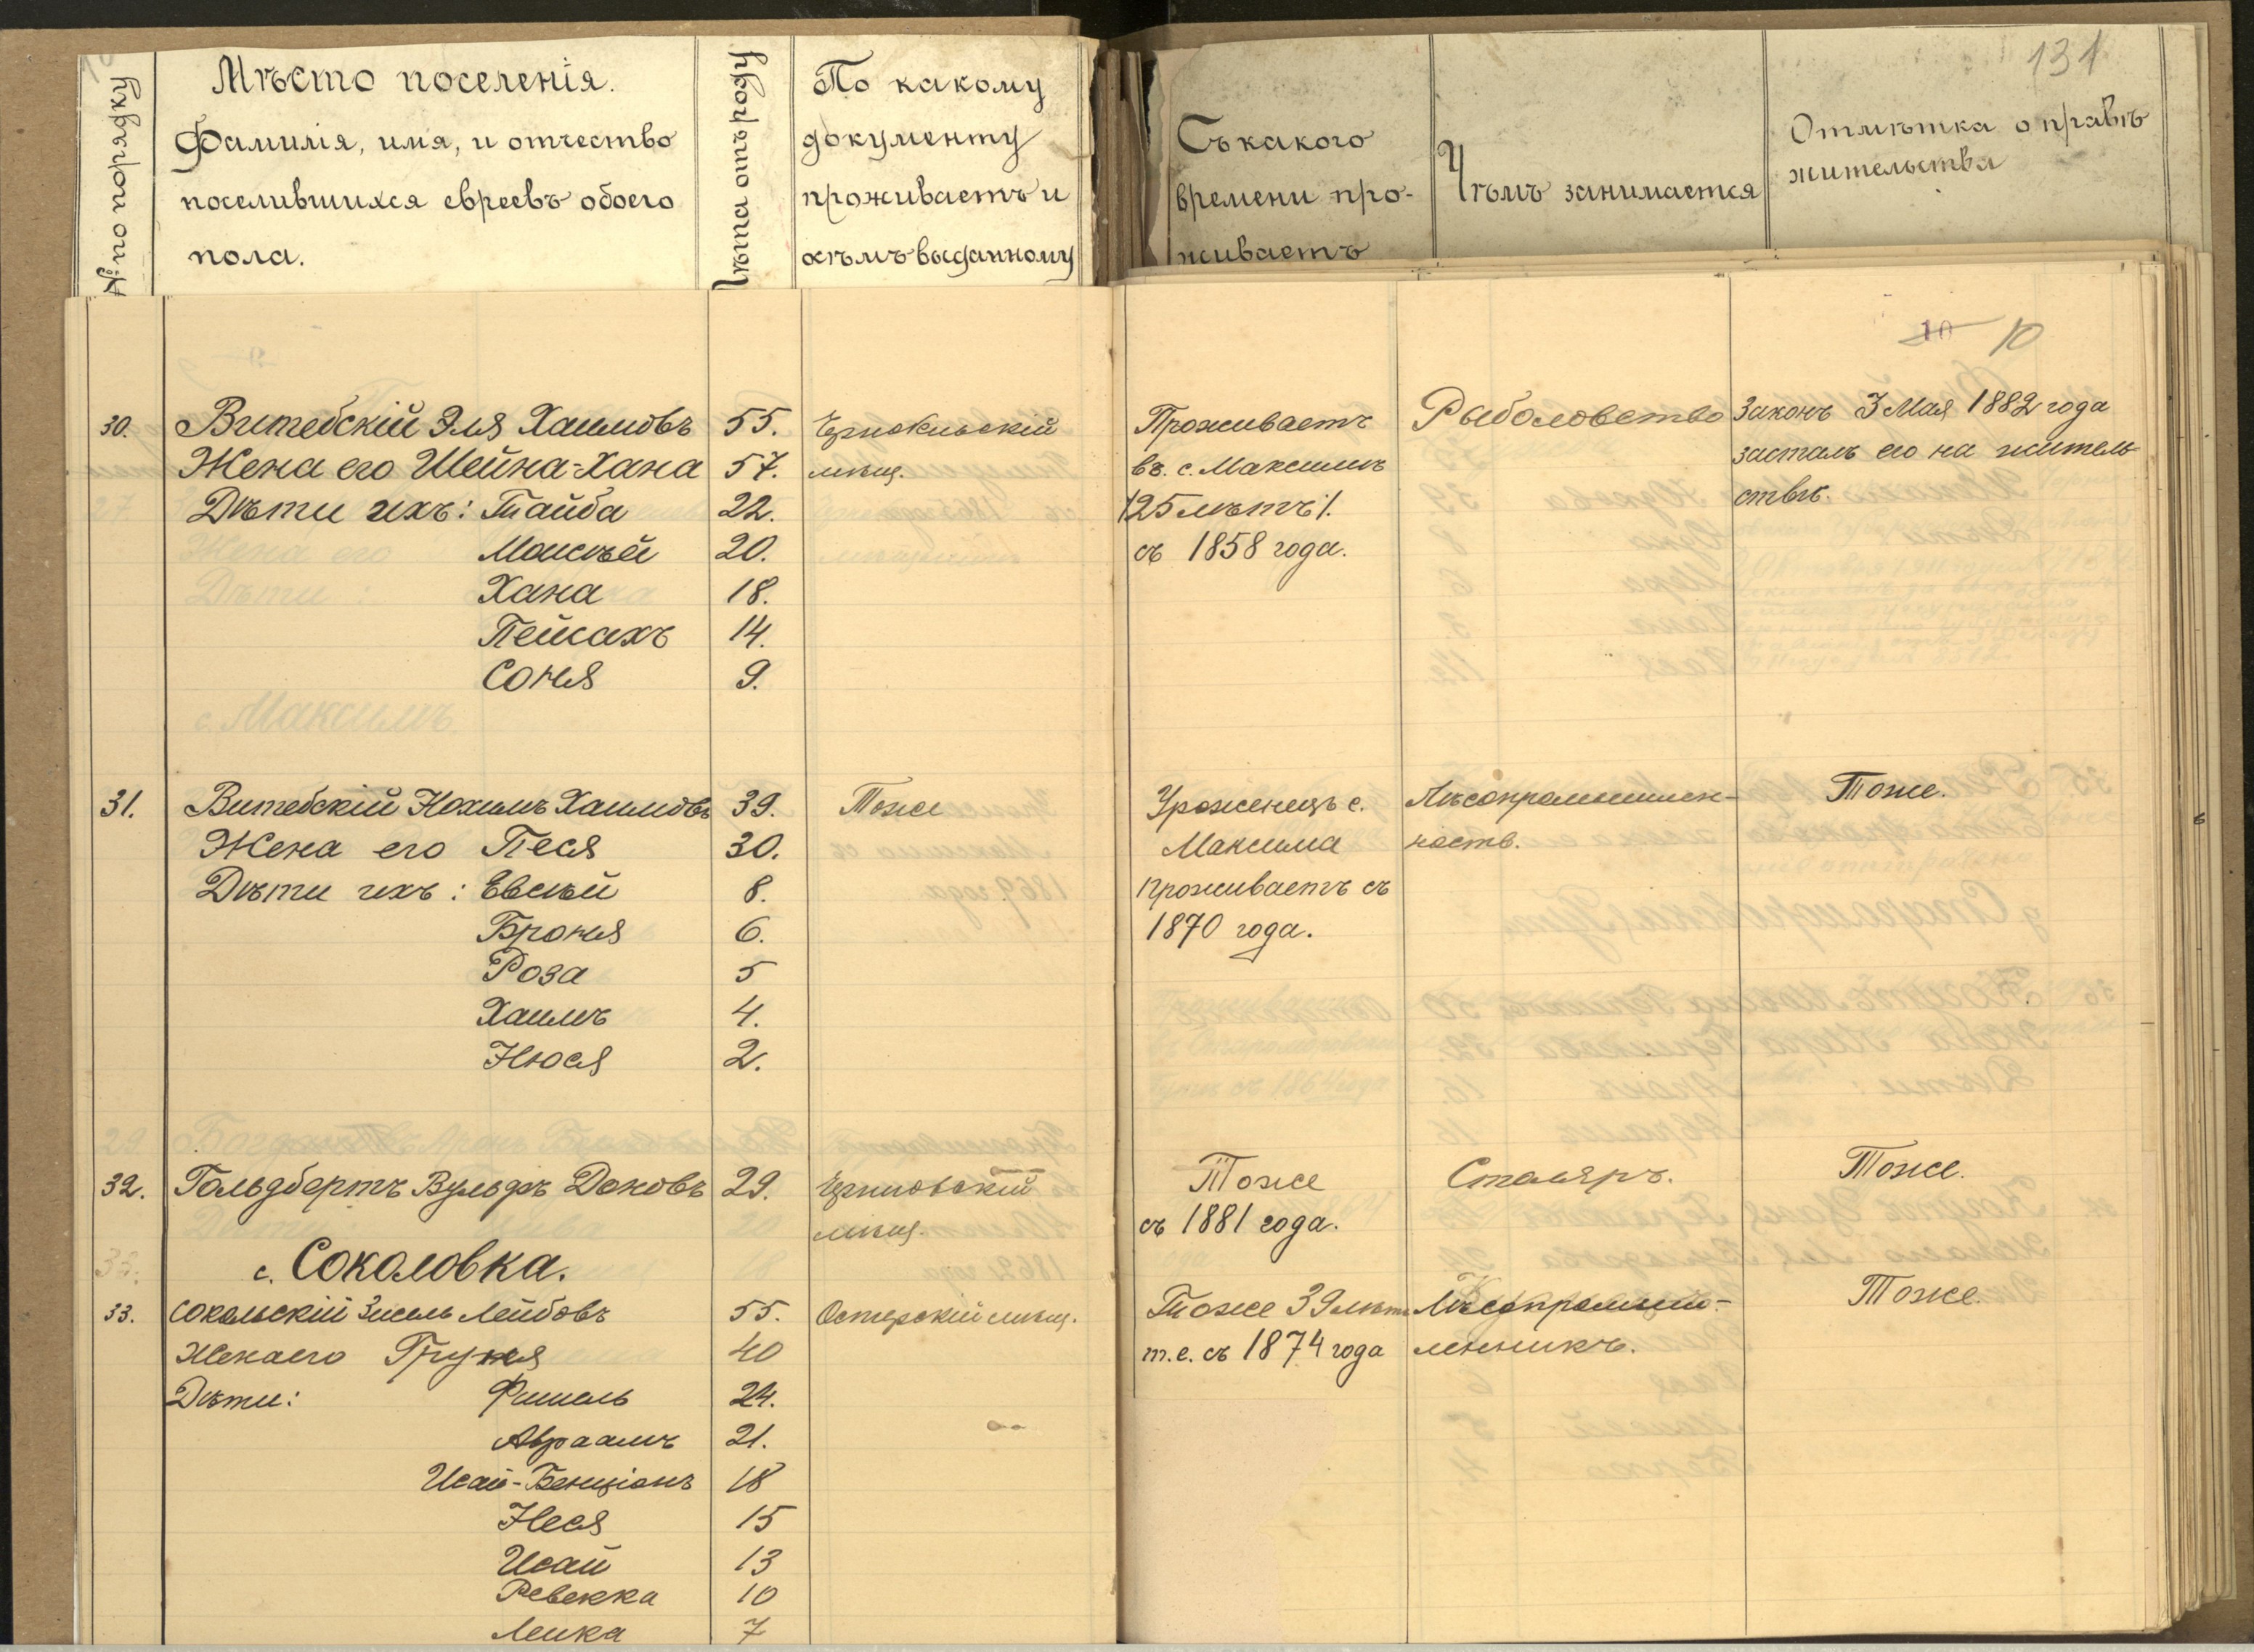 № по порядку
Мѣсто поселенія.
Фамилія, имя, и отчество
поселившихся евреевъ обоего
пола.
Лѣта отъ роду
По какому
документу
проживаетъ и
кѣмъ выданному
Съ какого
времени про-
живаетъ
Чѣмъ занимается
Отмѣтка о правѣ
жительства
131
10 10
30. Витебскій Эля Хаимовъ 55.
мѣщ.
Проживаетъ
въ с. Максимъ
/25 лѣтъ/.
съ 1858 года.
Рыболовство
Законъ 3 Мая 1882 года
засталъ его на житель-
ствѣ.
Жена его Шейна-Хана 57.
Дѣти ихъ: Тайба 22.
Моисѣй 20.
Хана 18.
Пейсахъ 14.
Соня 9.
31. Витебскій Нохимъ Хаимовъ 39. Тоже
Уроженецъ с.
Максима
проживаетъ съ
1870 года.
Лѣсопромышлен-
ность.
Тоже.
Жена его Песя 30.
Дѣти ихъ: Евсѣй 8.
Броня 6.
Роза 5
Хаимъ 4.
Нюся 2.
32. Гольдбертъ Вульфъ Доновъ 29.
мѣщ.
Тоже
съ 1881 года.
Столяръ.
Тоже.
с. Соколовка.
33. Сокольскій Зисель Лейбовъ 55. Остерскій мѣщ.
Тоже 39 лѣтъ
т.е. съ 1874 года
Лѣсопромыш-
ленникъ.
Тоже.
Жена его Груня 40
Дѣти: Фишель 24.
Авраамъ 21.
Исай-Бенціонъ 18
Неся 15
Исай 13
Ревекка 10
Лейка 7